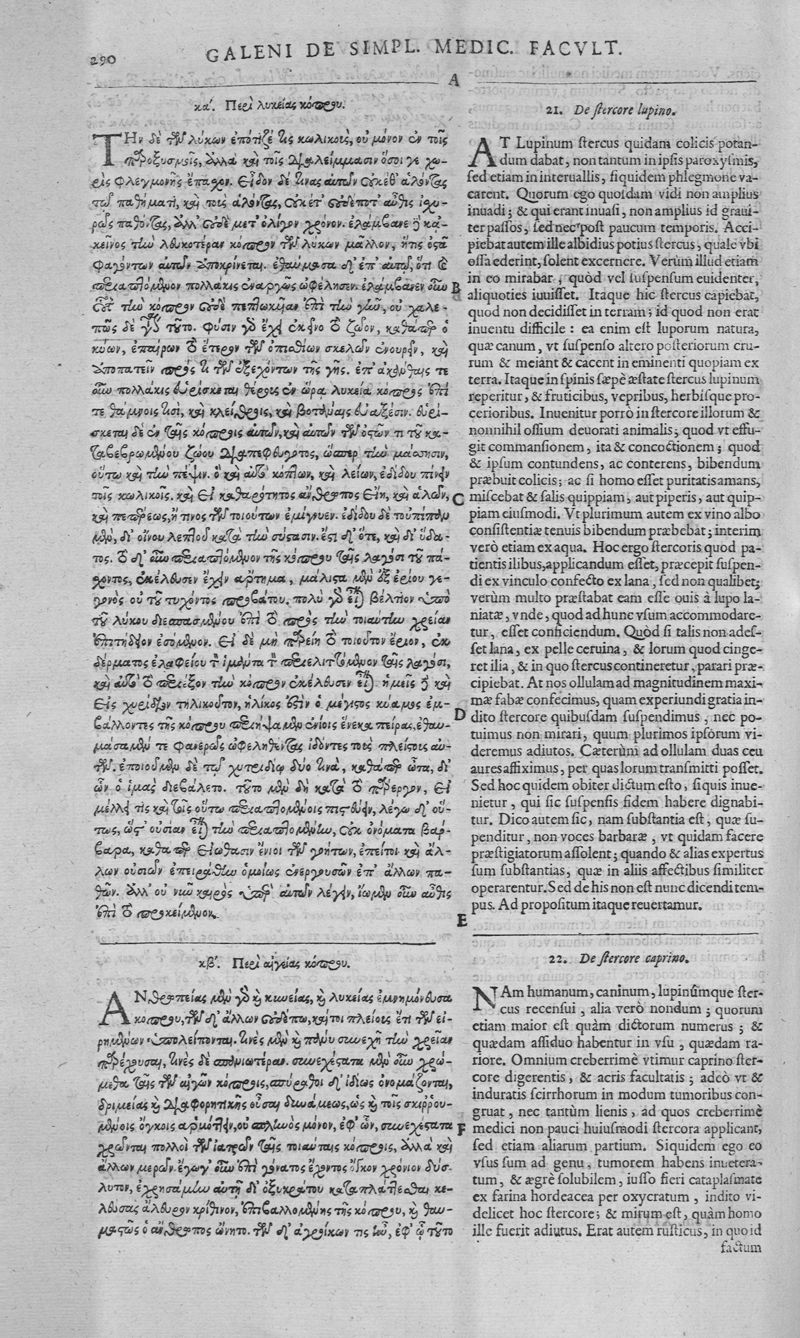 290
GALENI DE SIMPL. MEDIC. FACVLT.
A
κα΄. Περὶ λυκείας κόπρου.
ΤΗν δὲ τῶν λύκων ἐπότιζέ τις κωλικοὺς, οὐ μόνον ἐν τοῖς
παροξυσμοῖς, ἀλλὰ καὶ τοῖς διαλείμμασιν ὅσοι γε χω-
ρὶς φλεγμονῆς ἔπασχον. εἶδον δέ τινας αὐτῶν οὐκέθ᾽ ἁλόντας
τῷ παθήματι, καὶ τοὺς ἁλόντας, οὐκέτ᾽ οὐδέποτ᾽ αὖθις ἰσχυ-
ρῶς παθόντας, ἀλλ᾽ οὐδὲ μετ᾽ ὀλίγον χρόνον. ἐλάμβανε δὲ κἀ-
κεῖνος τὴν λευκοτέραν κόπρον τῶν λύκων μᾶλλον, ἥτις ὀστᾶ
φαγόντων αὐτῶν ἀποκρίνεται. ἐθαύμασα δ᾽ ἐπ᾽ αὐτῷ, ὅτι καὶ
περιαπτόμενον πολλάκις ἐναργῶς ὠφέλησεν. ἐλάμβανεν οὖν
οὗτος τὴν κόπρον οὐδὲ πεπτωκυῖαν ἐπὶ τὴν γῆν, οὐ χαλε-
πῶς δὲ τοῦτο. φύσιν γὰρ ἔχει ἐκεῖνο τὸ ζῶον, καθάπερ ὁ
κύων, ἐπαίρων τὸ ἕτερον τῶν ὀπισθίων σκελῶν ἐνουρεῖν, καὶ
ἀποπατεῖν πρός τι τῶν ἐξεχόντων τῆς γῆς. ἐπ᾽ ἀκάνθαις τε
οὖν πολλάκις εὑρίσκεται θέρους ἐν ὥρᾳ λυκεία κόπρος ἐπί
τε θάμνοις τισὶ, καὶ
εὑρί-
σκεται δὲ ἐν ταῖς κόπροις αὐτῶν, καὶ αὐτῶν τῶν ὀστῶν τι τοῦ κα-
ταβεβρωμένου ζώου διαπεφευγότος, ὥσπερ τὴν μάσησιν,
οὕτω καὶ τὴν πέψιν. ὃ καὶ αὐτὸ κόπτων, καὶ λειῶν, ἐδίδου πίνειν
τοῖς κωλικοῖς. καὶ εἰ καθαρότητος ἄνθρωπος εἴη, καὶ ἁλῶν,
καὶ πεπέρεως, ἤ τινος τοιούτων ἐμίγνυεν. ἐδίδου δὲ τοὐπίπαν
μὲν, δι᾽ οἴνου λεπτοῦ κατὰ τὴν σύστασιν. ἔστι δ᾽ ὅτε, καὶ δι᾽ ὕδα-
τος. τὸ δ᾽ οὖν περιαπτόμενον τῆς κόπρου ταῖς λαγόσι τοῦ πά-
σχοντος, ἐκέλευσεν ἔχειν ἄρτημα, μάλιστα μὲν ἐξ ἐρίου γε-
γονὸς οὐ τοῦ τυχόντος προβάτου. πολὺ γὰρ εἶναι βέλτιον ὑπὸ
τοῦ λύκου διεσπασμένου ἐπὶ τὸ πρὸς τὴν τοιαύτην χρείαν
ἐπιτήδειον ἐσόμενον. εἰ δὲ μὴ παρείη τὸ τοιοῦτον ἔριον, ἐκ
δέρματος ἐλαφείου τόν τε ἱμάντα τὸν περιελιττόμενον ταῖς λαγόσι,
καὶ αὐτὸ τὸ περιέχον τὴν κόπρον ἐκέλευσεν εἶναι. ἡμεῖς δὲ καὶ
εἰς χυτρίδιον τηλικοῦτον, ἡλίκος ἐστὶν ὁ μέγιστος κύαμος ἐμ-
βάλλοντες τῆς κόπρου περιήψαμεν ἐνίοις ἕνεκα πείρας, ἐθαυ-
μάσαμέν τε φανερῶς ὠφεληθέντας ἰδόντες τοὺς πλείστους αὐ-
τῶν. ἐποιοῦμεν δὲ τῷ χυτριδίῳ δύο τινὰ, καθάπερ ὦτα, δι᾽
ὧν ὁ ἱμὰς διεβάλετο. τοῦτο μὲν δὴ κατὰ τὸ πάρεργον, εἰ
μέλλῃ τις καὶ τοῖς οὕτω περιαπτομένοις πιστεύειν, λέγω δ᾽ οὕ-
τως, ὡς οὐσίαν εἶναι τὴν περιαπτομένην, οὐκ ὀνόματα βάρ-
βαρα, καθάπερ εἰώθασιν ἔνιοι τῶν γοήτων, ἐπείτοι καὶ ἄλ-
λων οὐσιῶν ἐπειράθην ὁμοίως ἐνεργουσῶν ἐπ᾽ ἄλλων πα-
θῶν. ἀλλ᾽ οὐ νῦν καιρὸς ὑπὲρ αὐτῶν λέγειν, ἴωμεν οὖν αὖθις
ἐπὶ τὸ προκείμενον.
κβ΄. Περὶ αἰγείας κόπρου.
ΑΝθρωπείας μὲν γὰρ καὶ κυνείας, καὶ λυκείας ἐμνημόνευσα
κόπρου, τῶν δ᾽ ἄλλων οὐδέπω, καίτοι πλείους ἔτι τῶν εἰ-
ρημένων ὑπολείπονται. τινὲς μὲν καὶ πάνυ συνεχῆ τὴν χρείαν
παρέχουσαι, τινὲς δὲ σπανιωτέραν. συνεχέστατα μὲν οὖν χρώ-
μεθα ταῖς τῶν αἰγῶν κόπροις, σπύραθοι δ᾽ ἰδίως ὀνομάζονται,
δριμείας καὶ διαφορητικῆς οὖσαι δυνάμεως, ὡς καὶ τοῖς σκιρρου-
μένοις ὄγκοις ἁρμόττειν, οὐ σπληνὸς μόνον, ἐφ᾽ ὧν, συνεχέστατα
χρῶνται πολλοὶ τῶν ἰατρῶν ταῖς τοιαύταις κόπροις, ἀλλὰ καὶ
ἄλλων μερῶν. ἔγωγ᾽ οὖν ἐπὶ γόνατος ἔχοντος ὄγκον χρόνιον δύσ-
λυτον, ἐχρησάμην αὐτῇ δι᾽ ὀξυκράτου καταπλάττεσθαι κε-
λεύσας ἄλευρον κρίθινον, ἐπεμβαλλομένης τῆς κόπρου, καὶ θαυ-
μαστῶς ὁ ἄνθρωπος ὤνητο. τῶν δ᾽ ἀγροίκων τις ἦν, ἐφ᾽ ᾧ τοῦτο
B
C
D
E
F
21. De ſtercore lupino.
AT Lupinum ſtercus quidam colicis potan-
dum dabat, non tantum in ipſis paroxyſmis,
ſed etiam in interuallis, ſiquidem phlegmone va-
carent. Quorum ego quoſdam vidi non amplius
inuadi; & qui erant inuaſi, non amplius id graui-
ter paſſos, ſed nec poſt paucum temporis. Acci-
piebat autem ille albidius potius ſtercus, quale vbi
oſſa ederint, ſolent excernere. Verùm illud etiam
in eo mirabar, quòd vel ſuſpenſum euidenter,
aliquoties iuuiſſet. Itaque hic ſtercus capiebat,
quod non decidiſſet in terram; id quod non erat
inuentu difficile: ea enim eſt luporum natura,
quæ canum, vt ſuſpenſo altero poſteriorum cru-
rum & meiant & cacent in eminenti quopiam ex
terra. Itaque in ſpinis ſæpè æſtate ſtercus lupinum
reperitur, & fruticibus, vepribus, herbiſque pro-
cerioribus. Inuenitur porrò in ſtercore illorum &
nonnihil oſſium deuorati animalis; quod vt effu-
git commanſionem, ita & concoctionem; quod
& ipſum contundens, ac conterens, bibendum
præbuit colicis; ac ſi homo eſſet puritatis amans,
miſcebat & ſalis quippiam, aut piperis, aut quip-
piam eiuſmodi. Vt plurimum autem ex vino albo
conſiſtentiæ tenuis bibendum præbebat; interim
verò etiam ex aqua. Hoc ergo ſtercoris quod pa-
tientis ilibus, applicandum eſſet, præcepit ſuſpen-
di ex vinculo confecto ex lana, ſed non qualibet;
verùm multo præſtabat eam eſſe ouis à lupo la-
niatæ, vnde, quod ad hunc vſum accommodare-
tur, eſſet conficiendum. Quòd ſi talis non adeſ-
ſet lana, ex pelle ceruina, & lorum quod cinge-
ret ilia, & in quo ſtercus contineretur, parari præ-
cipiebat. At nos ollulam ad magnitudinem maxi-
mæ fabæ confecimus, quam experiundi gratia in-
dito ſtercore quibuſdam ſuſpendimus, nec po-
tuimus non mirari, quum plurimos ipſorum vi-
deremus adiutos. Cæterùm ad ollulam duas ceu
aures affiximus, per quas lorum tranſmitti poſſet.
Sed hoc quidem obiter dictum eſto, ſiquis inue-
nietur, qui ſic ſuſpenſis fidem habere dignabi-
tur. Dico autem ſic, nam ſubſtantia eſt, quæ ſu-
ſpenditur, non voces barbaræ, vt quidam facere
præſtigiatorum aſſolent; quando & alias expertus
ſum ſubſtantias, quæ in aliis affectibus ſimiliter
operarentur. Sed de his non eſt nunc dicendi tem-
pus. Ad propoſitum itaque reuertamur.
22. De ſtercore caprino.
NAm humanum, caninum, lupinúmque ſter-
cus recenſui, alia verò nondum; quorum
etiam maior eſt quàm dictorum numerus; &
quædam aſſiduo habentur in vſu, quædam ra-
riore. Omnium creberrimè vtimur caprino ſter-
core digerentis, & acris facultatis; adeò vt &
induratis ſcirrhorum in modum tumoribus con-
gruat, nec tantùm lienis, ad quos creberrimè
medici non pauci huiuſmodi ſtercora applicant,
ſed etiam aliarum partium. Siquidem ego eo
vſus ſum ad genu, tumorem habens inuetera-
tum, & ægrè ſolubilem, iuſſo fieri cataplaſmate
ex farina hordeacea per oxycratum, indito vi-
delicet hoc ſtercore; & mirum eſt, quàm homo
ille fuerit adiutus. Erat autem ruſticus, in quo id
factum